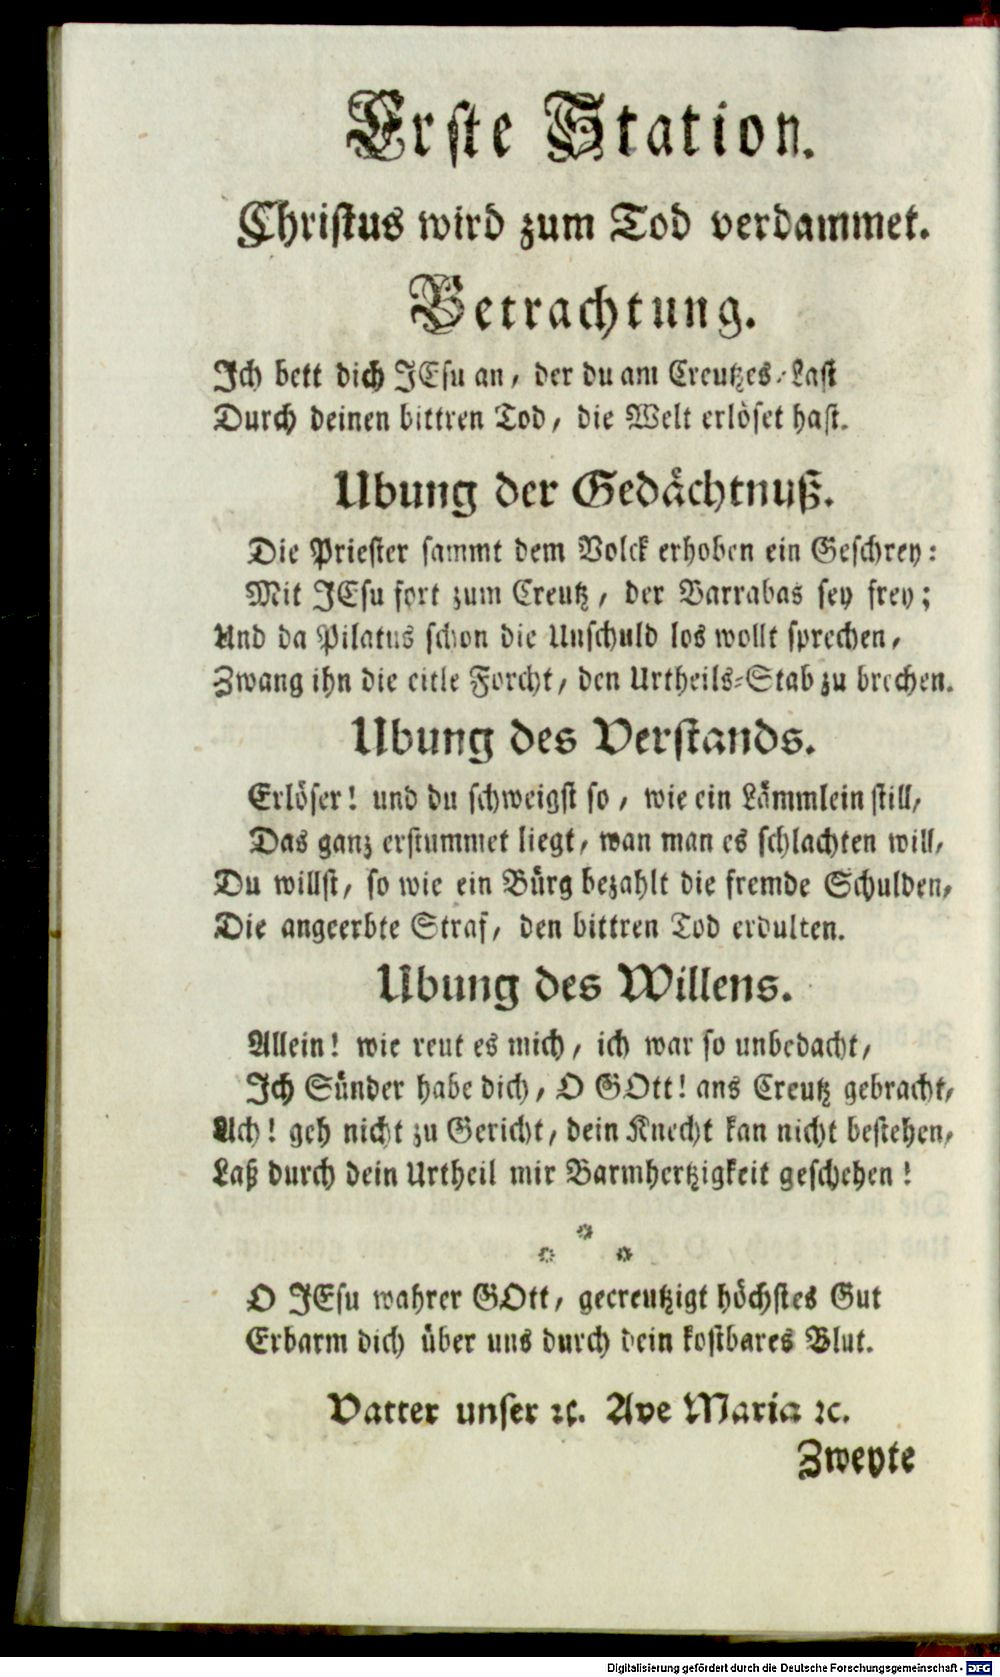 Erste Station.
Christus wird zum Tod verdammet.
Betrachtung.
Ich bett dich JEsu an, der du am Creutzes-Last
Durch deinen bittren Tod, die Welt erlöset hast.
Ubung der Gedächtnuß.
Die Priester sammt dem Volck erhoben ein Geschrey:
Mit JEsu fort zum Creutz, der Barrabas sey frey;
Und da Pilatus schon die Unschuld los wollt sprechen,
Zwang ihn die eitle Forcht, den Urtheils-Stab zu brechen.
Ubung des Verstands.
Erlöser! und du schweigst so, wie ein Lämmlein still,
Das ganz erstummet liegt, wan man es schlachten will,
Du willst, so wie ein Bürg bezahlt die fremde Schulden,
Die angeerbte Straf, den bittren Tod erdulten.
Ubung des Willens.
Allein! wie reut es mich, ich war so unbedacht,
Ich Sünder habe dich, O GOtt! ans Creutz gebracht,
Ach! geh nicht zu Gericht, dein Knecht kan nicht bestehen,
Laß durch dein Urtheil mir Barmhertzigkeit geschehen!
O JEsu wahrer GOtt, gecreutzigt höchstes Gut
Erbarm dich über uns durch dein kostbares Blut.
Vatter unser ꝛc. Ave Maria ꝛc.
Zweyte
Digitalisierung gefördert durch die Deutsche Forschungsgemeinschaft - DFG